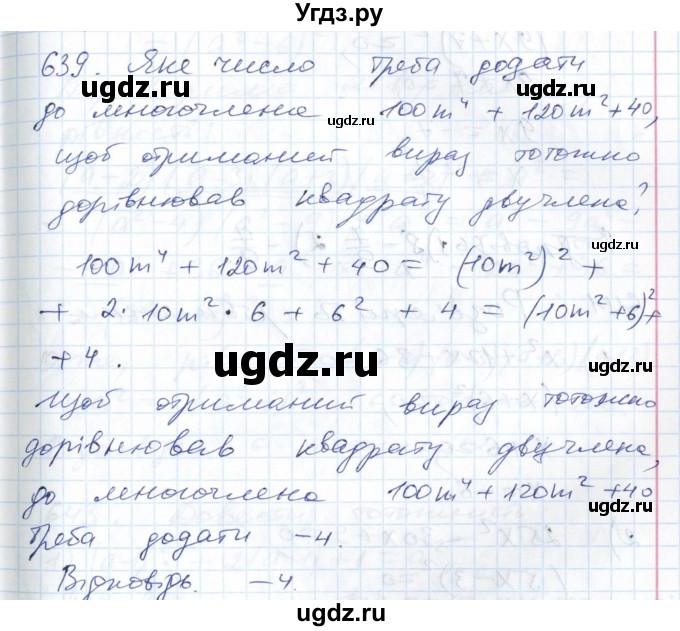 Угдз.ру
639. Яке число треба додати
ugdz.ru
ugdz.ru
до многочлена 100m⁴ + 120m² + 40,
щоб отриманий вираз тотожно
дорівнював квадрату двучлена?
ugdz.ru
100m⁴ + 120m² + 40 = (10m²)² +
+ 2·10m²·6 + 6² + 4 = (10m² + 6)² +
+ 4.
ugdz.ru
Щоб отриманий вираз тотожно
дорівнював квадрату двучлена,
до многочлена 100m⁴ + 120m² + 40
ugdz.ru
треба додати -4.
Відповідь. -4.
ugdz.ru
ugdz.ru
ugdz.ru